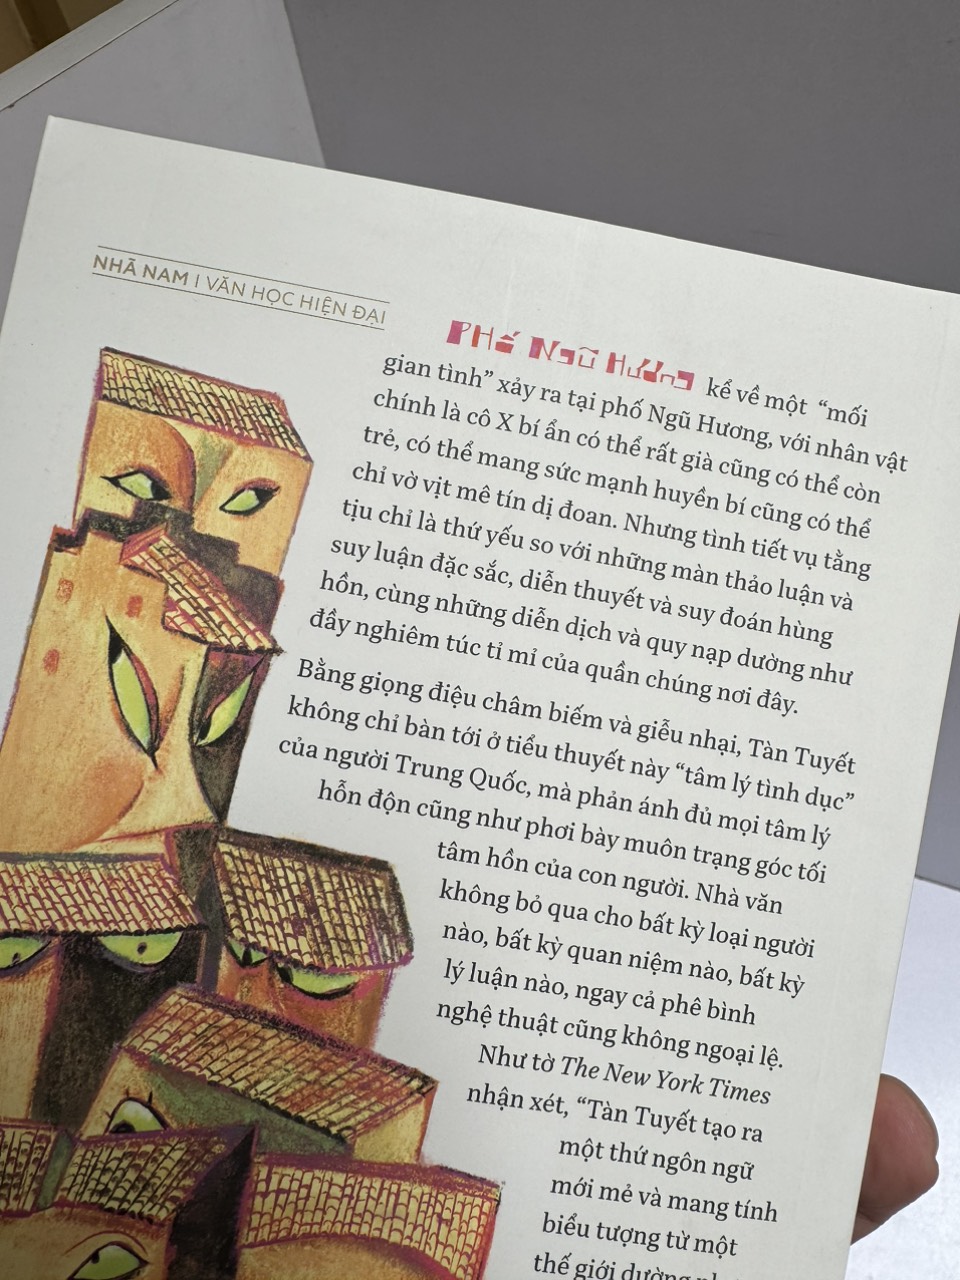 NHÃ NAM | VĂN HỌC HIỆN ĐẠI
PHỐ NGŨ HƯƠNG kể về một “mối
gian tình” xảy ra tại phố Ngũ Hương, với nhân vật
chính là cô X bí ẩn có thể rất già cũng có thể còn
trẻ, có thể mang sức mạnh huyền bí cũng có thể
chỉ vờ vịt mê tín dị đoan. Nhưng tình tiết vụ tằng
tịu chỉ là thứ yếu so với những màn thảo luận và
suy luận đặc sắc, diễn thuyết và suy đoán hùng
hồn, cùng những diễn dịch và quy nạp dường như
đầy nghiêm túc tỉ mỉ của quần chúng nơi đây.
Bằng giọng điệu châm biếm và giễu nhại, Tàn Tuyết
không chỉ bàn tới ở tiểu thuyết này “tâm lý tình dục”
của người Trung Quốc, mà phản ánh đủ mọi tâm lý
hỗn độn cũng như phơi bày muôn trạng góc tối
tâm hồn của con người. Nhà văn
không bỏ qua cho bất kỳ loại người
nào, bất kỳ quan niệm nào, bất kỳ
lý luận nào, ngay cả phê bình
nghệ thuật cũng không ngoại lệ.
Như tờ The New York Times
nhận xét, “Tàn Tuyết tạo ra
một thứ ngôn ngữ
mới mẻ và mang tính
biểu tượng từ một
thế giới dường